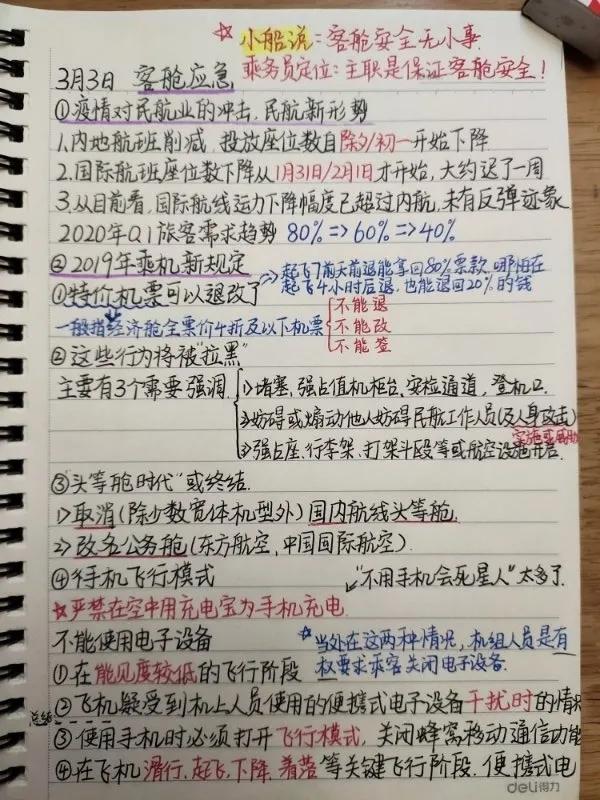 ☆小船说:客舱安全无小事.
乘务员定位:主职是保证客舱安全!
3月3日 客舱应急
①疫情对民航业的冲击,民航新形势
1.内地航班削减,投放座位数自除夕/初一开始下降
2.国际航班座位数下降从1月31日/2月1日才开始,大约迟了一周
3.从目前看,国际航线运力下降幅度已超过内航,未有反弹迹象
2020年Q1旅客需求趋势 80%=>60%=>40%
②2019年乘机新规定
起飞7前天前退能拿回80%票款,哪怕在
①特价机票可以退改了
起飞4小时后退,也能退回20%的钱
一般指经济舱全票价4折及以下机票
不能退
不能改
不能签
②这些行为将被"拉黑"
主要有3个需要强调
1>堵塞,强占值机柜台,安检通道,登机口
2>妨碍或煽动他人妨碍民航工作人员(及人身攻击)
实施或威胁
3>强占座、行李架、打架斗殴等或航空设施开启.
③"头等舱时代"或终结.
1>取消(除少数宽体机型外)国内航线头等舱.
2>改名公务舱(东方航空,中国国际航空).
④手机飞行模式
"不用手机会死星人"太多了.
☆严禁在空中用充电宝为手机充电
不能使用电子设备
☆当处在这两种情况,机组人员是有
权要求乘客关闭电子设备.
①在能见度较低的飞行阶段
②飞机疑受到机上人员使用的便携式电子设备干扰时的情况
总结
③使用手机时必须打开飞行模式,关闭蜂窝移动通信功能
④在飞机滑行、起飞、下降、着落等关键飞行阶段,便携式电
deli得力